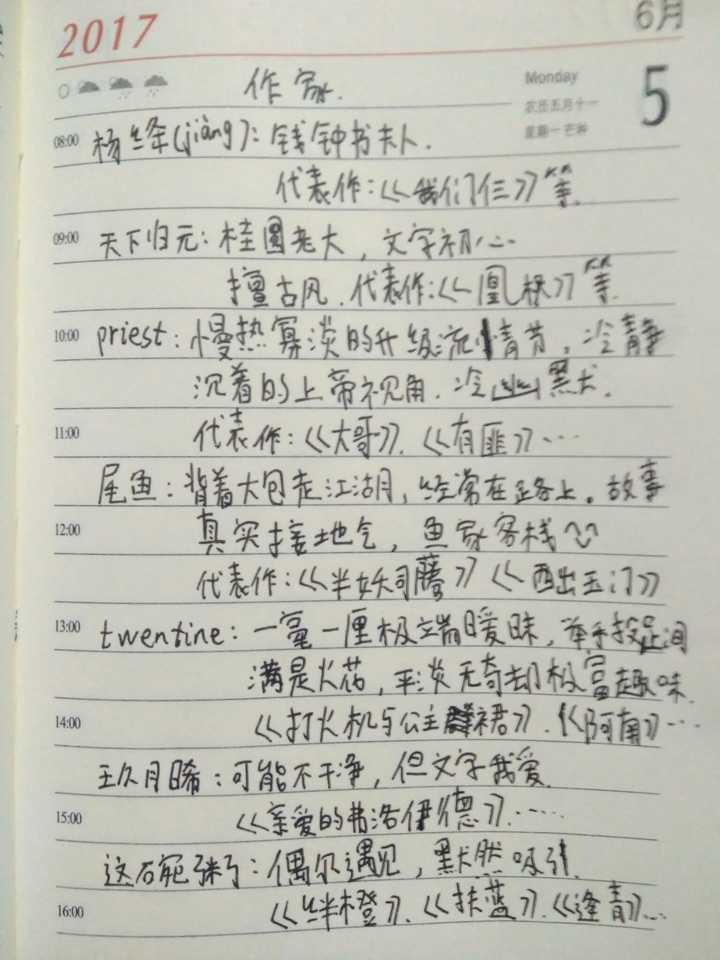 2017
6月
作家.
Monday
农历五月十一
星期一 芒种
5
08:00 杨绛(jiàng): 钱钟书夫人.
代表作:《我们仨》等.
09:00 天下归元: 桂圆老大, 文字初心
擅古风. 代表作:《凰权》等.
10:00 priest: 慢热寡淡的升级流情节, 冷静
沉着的上帝视角. 冷幽默.
11:00 代表作:《大哥》.《有匪》…
尾鱼: 背着大包走江湖, 经常在路上. 故事
12:00 真实接地气, 鱼家客栈
代表作:《半妖司藤》《西出玉门》
13:00 twentine: 一毫一厘极端暧昧, 举手投足间
满是火花, 平淡无奇却极富趣味.
14:00 《打火机与公主裙》.《阿南》…
玖月晞: 可能不干净, 但文字我爱.
15:00 《亲爱的弗洛伊德》.……
这碗粥: 偶尔遇见, 默然吸引.
16:00 《绊橙》.《扶蓝》.《逢青》…